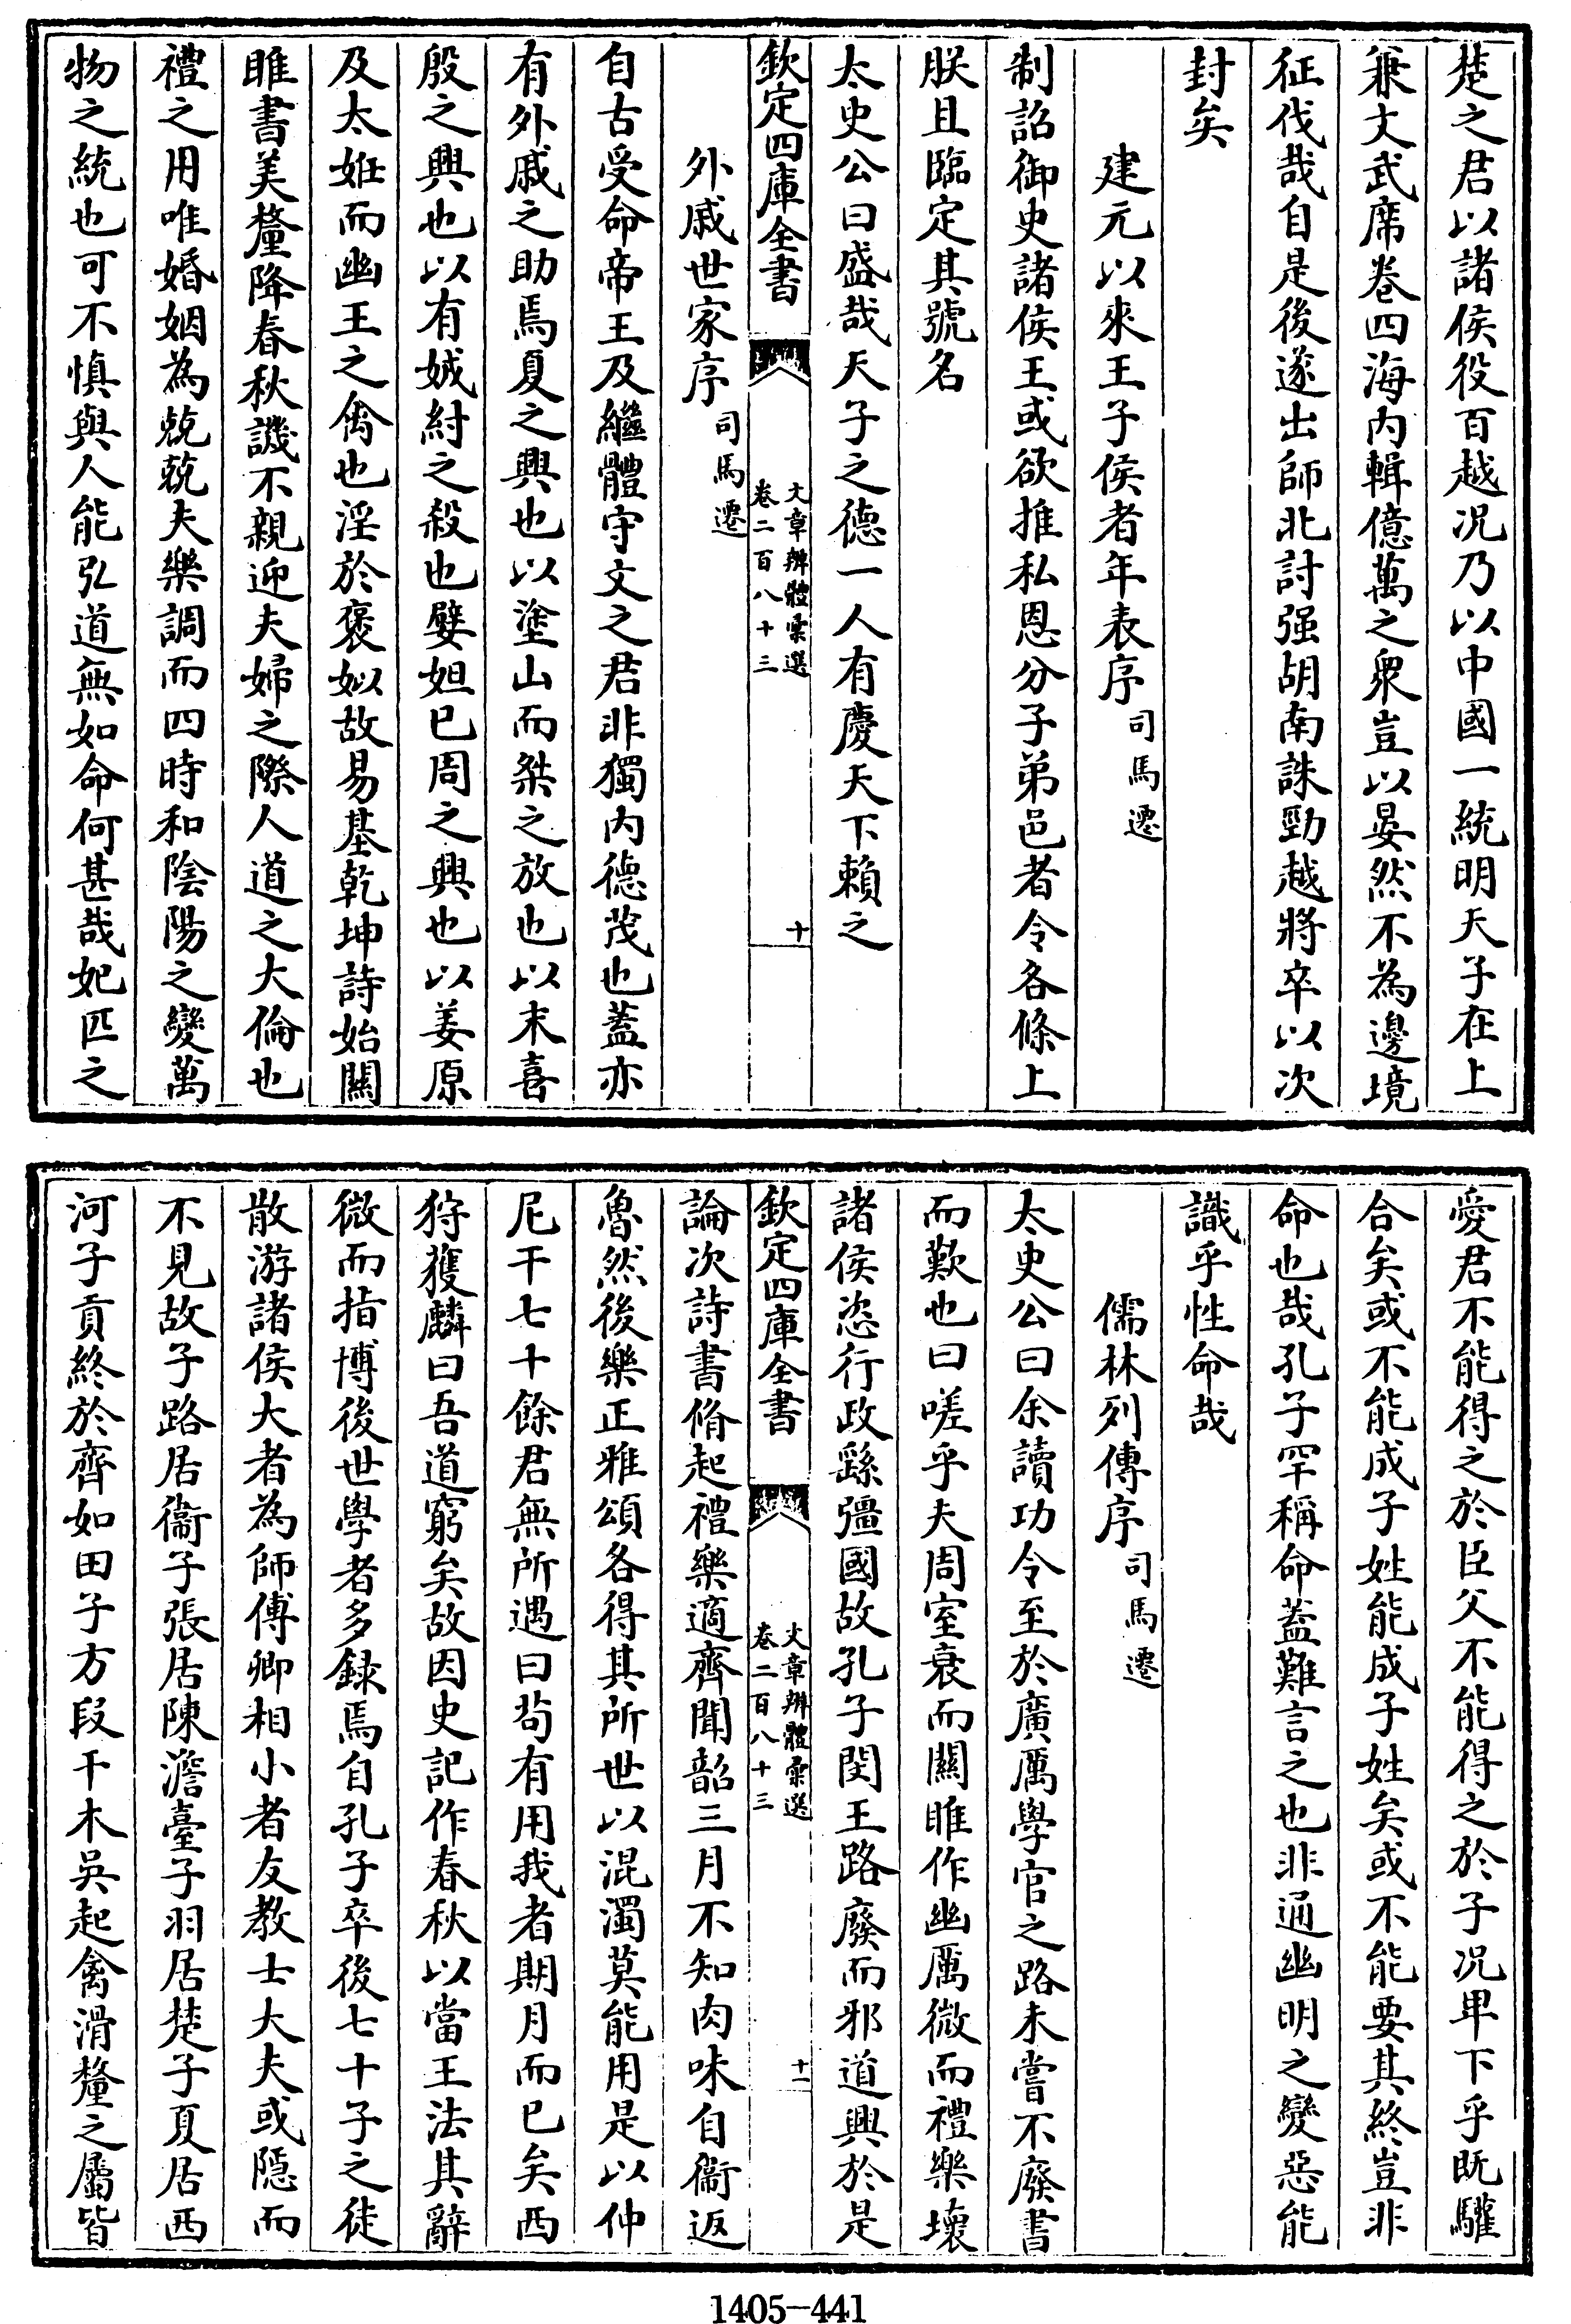 楚之君以諸侯役百越况乃以中國一統明天子在上
兼文武席卷四海内輯億萬之衆豈以晏然不為邊境
征伐哉自是後遂出師北討强胡南誅勁越將卒以次
封矣
建元以來王子侯者年表序司馬遷
制詔御史諸侯王或欲推私恩分子弟邑者令各條上
朕且臨定其號名
太史公曰盛哉天子之德一人有慶天下賴之
欽定四庫全書
文章辨體彙選
卷二百八十三
十
外戚世家序司馬遷
自古受命帝王及繼體守文之君非獨内德茂也蓋亦
有外戚之助焉夏之興也以塗山而桀之放也以末喜
殷之興也以有娀紂之殺也嬖妲已周之興也以姜原
及太姙而幽王之禽也淫於褒姒故易基乾坤詩始關
雎書美釐降春秋譏不親迎夫婦之際人道之大倫也
禮之用唯婚姻為兢兢夫樂調而四時和陰陽之變萬
物之統也可不慎與人能弘道無如命何甚哉妃匹之
愛君不能得之於臣父不能得之於子况卑下乎既驩
合矣或不能成子姓能成子姓矣或不能要其終豈非
命也哉孔子罕稱命蓋難言之也非通幽明之變惡能
識乎性命哉
儒林列傳序司馬遷
太史公曰余讀功令至於廣厲學官之路未嘗不廢書
而歎也曰嗟乎夫周室衰而關雎作幽厲微而禮樂壞
諸侯恣行政繇彊國故孔子閔王路廢而邪道興於是
欽定四庫全書
文章辨體彙選
卷二百八十三
十一
論次詩書脩起禮樂適齊聞韶三月不知肉味自衞返
魯然後樂正雅頌各得其所世以混濁莫能用是以仲
尼干七十餘君無所遇曰苟有用我者期月而已矣西
狩獲麟曰吾道窮矣故因史記作春秋以當王法其辭
微而指博後世學者多録焉自孔子卒後七十子之徒
散游諸侯大者為師傅卿相小者友教士大夫或隱而
不見故子路居衞子張居陳澹臺子羽居楚子夏居西
河子貢終於齊如田子方段干木吳起禽滑釐之屬皆
1405-441